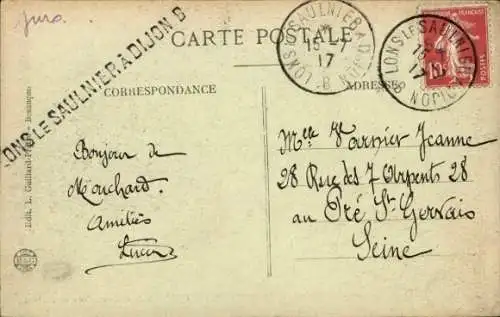 Jura.
LONS LE SAULNIER A DIJON B
CARTE POSTALE
LONS LE SAULNIER A DIJON B
15-7
17
LONS LE SAULNIER A DIJON B
15
17
10c
CORRESPONDANCE
ADRESSE
Bonjour de
Mouchard.
Amitiés
Lucien
Melle Varnier Jeanne
28 Rue des 7 Arpents 28
au Pré St Gervais
Seine
Edit. L. Gaillard-Prêtre, Besançon